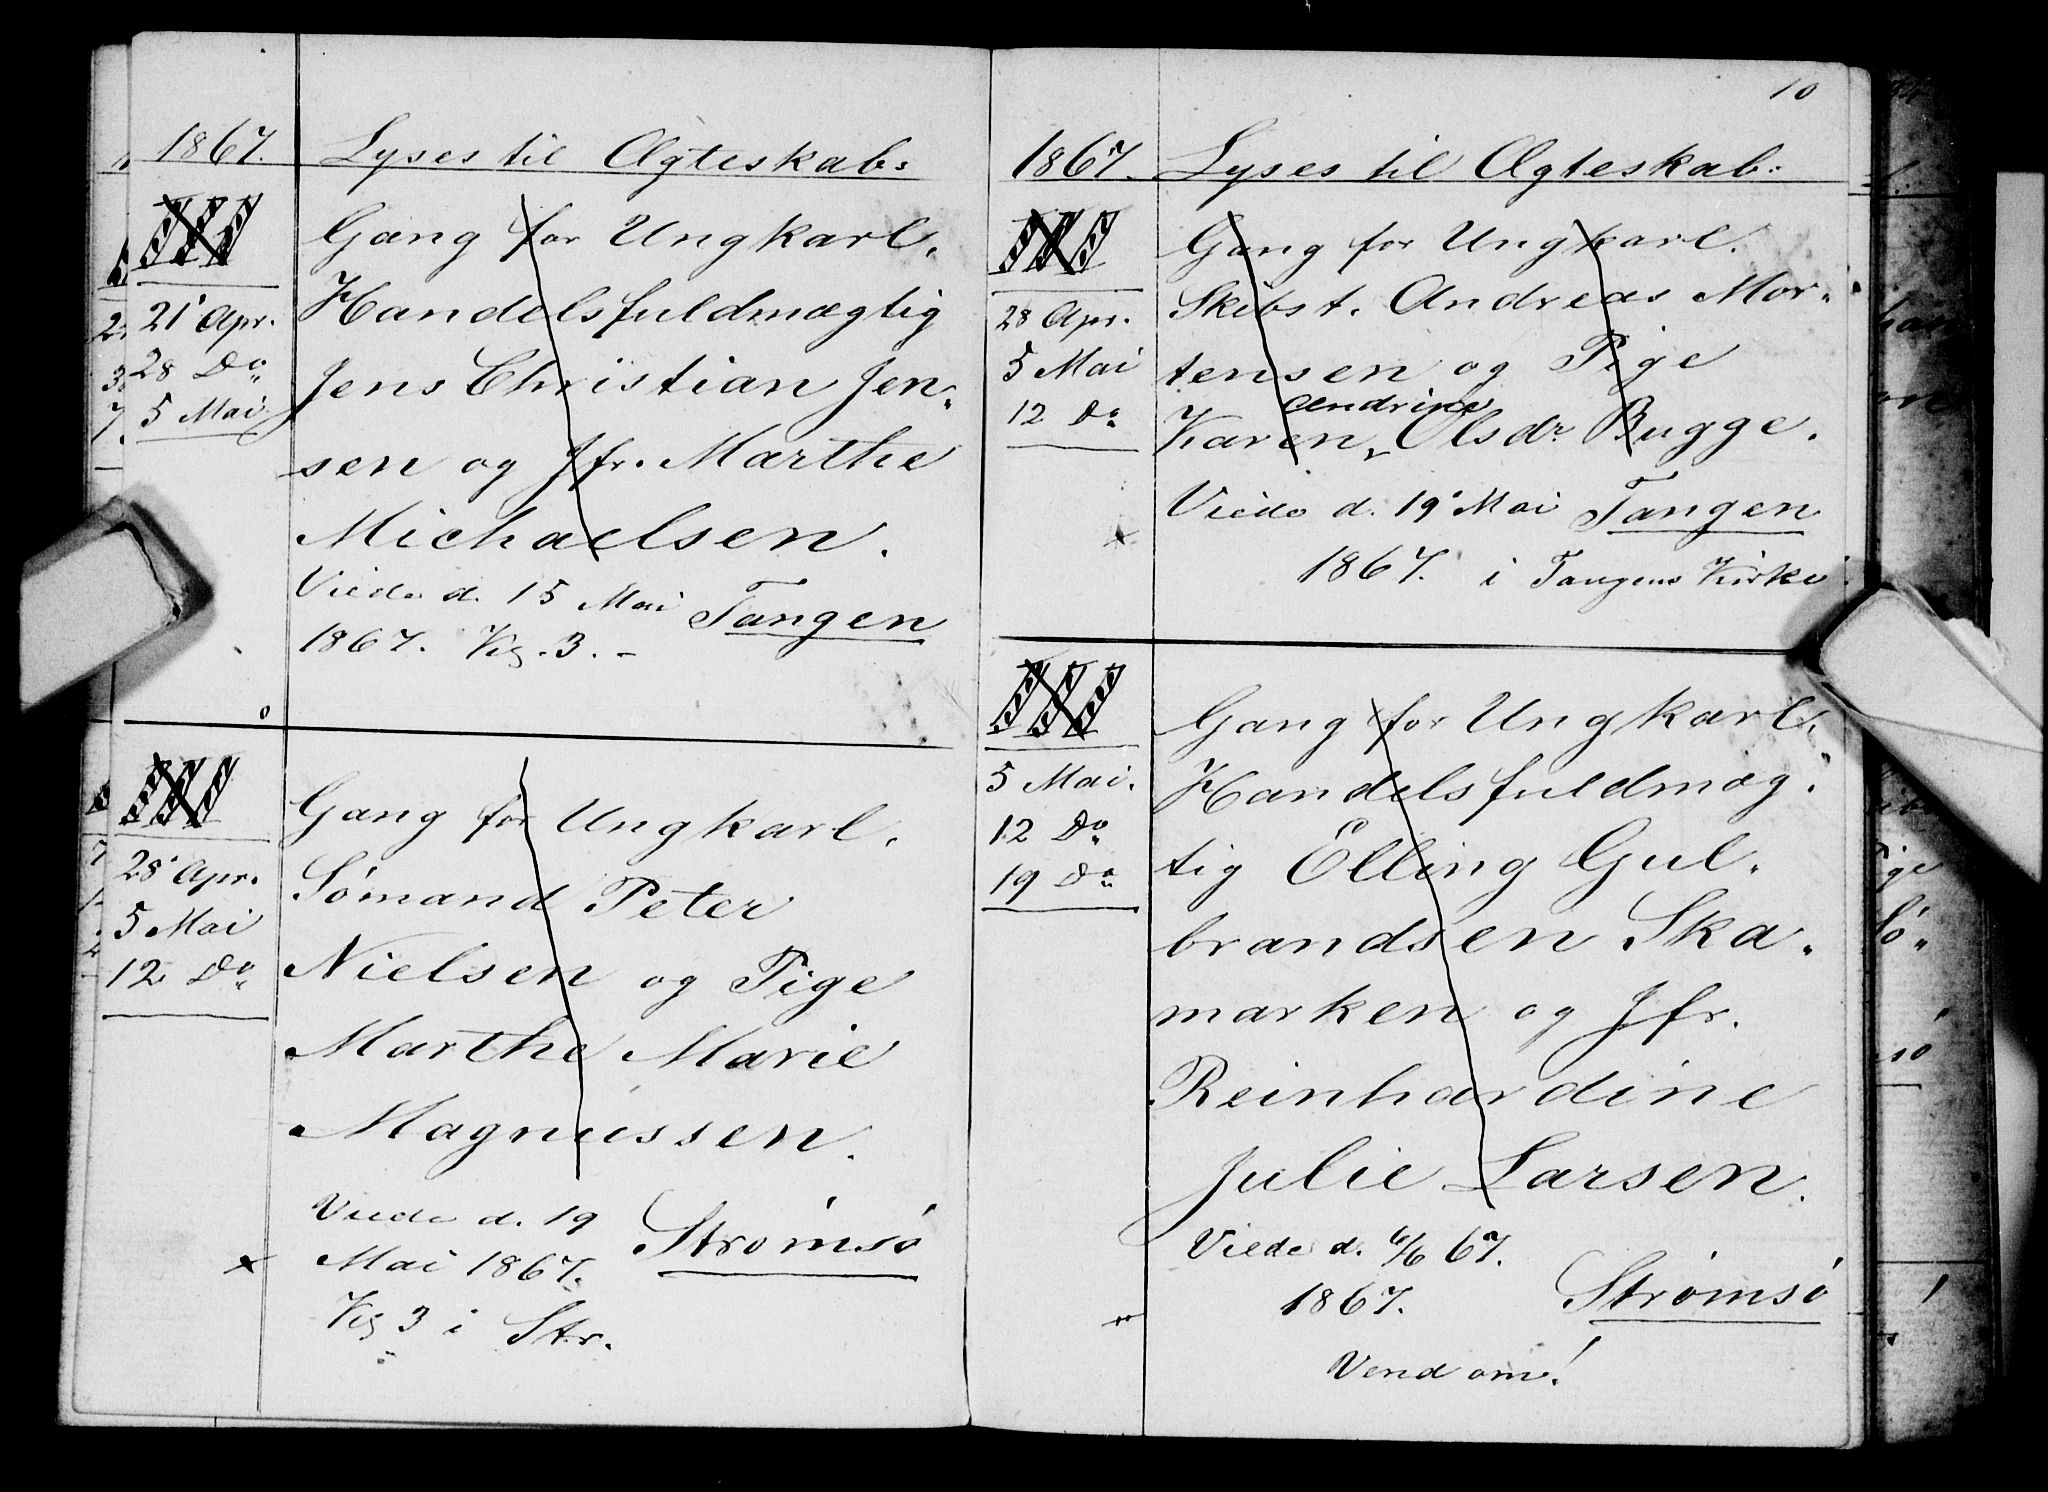 1867. Lyses til Ægteskab:
III Gang for Ungkarl.
21' Apr. Handelsfuldmægtig
28 Do Jens Christian Jen-
5 Mai sen og Jfr. Marthe
Michaelsen.
Viede d. 15 Mai Tangen
1867. Kg. 3. -
III Gang for Ungkarl.
28' Apr. Sømand Peter
5 Mai Nielsen og Pige
12 Do Marthe Marie
Magnussen.
Viede d. 19 Strømsø
Mai 1867.
Kg 3 i Str.
10
1867. Lyses til Ægteskab:
III Gang for Ungkarl.
28 Apr. Skibst. Andreas Mor-
5 Mai tensen og Pige
12 Do Karen Andrine Olsdr Bugge.
Viede d. 19' Mai Tangen
1867. i Tangens Kirke.
III Gang for Ungkarl.
5 Mai. Handelsfuldmæg-
12 Do tig Elling Gul-
19 Do brandsen Ska-
marken og Jfr.
Reinhardine
Julie Larsen.
Viede d. 6/6 67.
1867. Strømsø
Vend om!